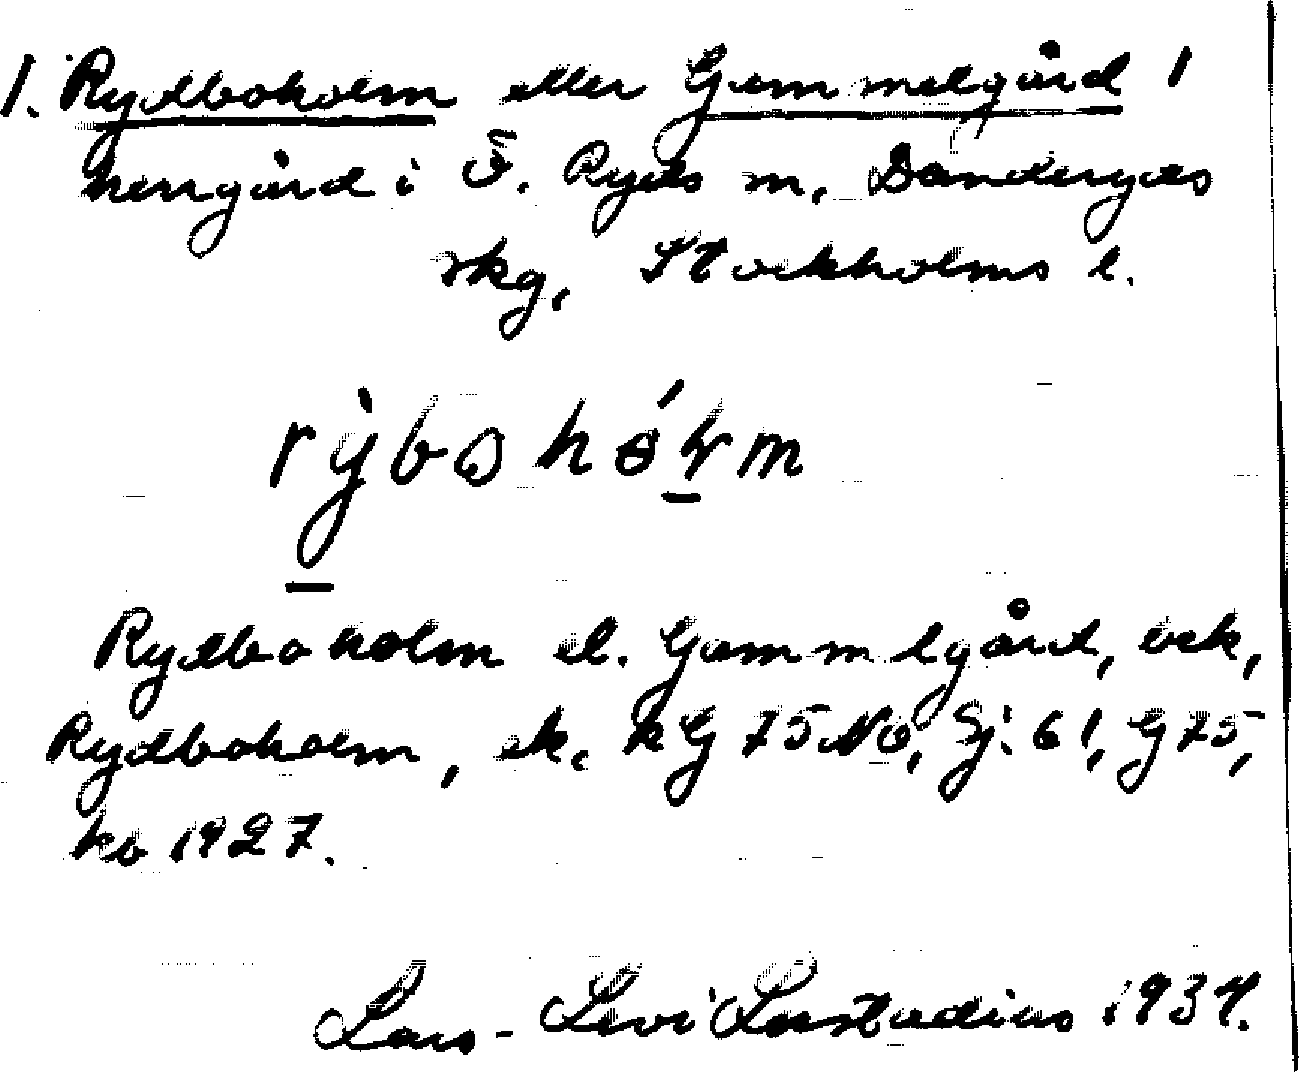 1. Rydboholm eller Gammelgård 1
herrgård i Ö. Ryds sn, Danderyds
skg, Stockholms l.
Rydboholm el. Gammelgård, eck,
Rydboholm, ek. kG 75 NO, Sj: 61, G 75,
kb 1927.
Lars-Levi Læstadius 1934.